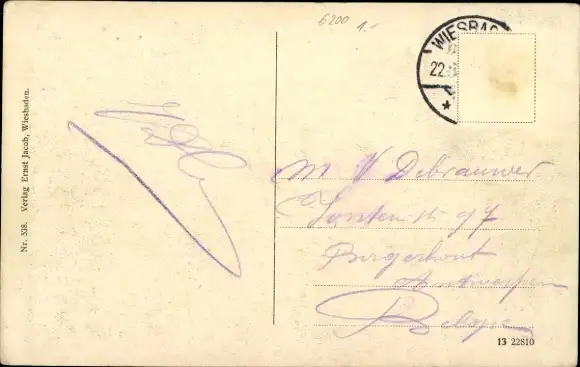 6200 1.-
WIESBA
22.
Nr. 538. Verlag Ernst Jacob, Wiesbaden.
M V Debrauwer
97
Borgerhout
Antwerpen
Belgie
13 22810